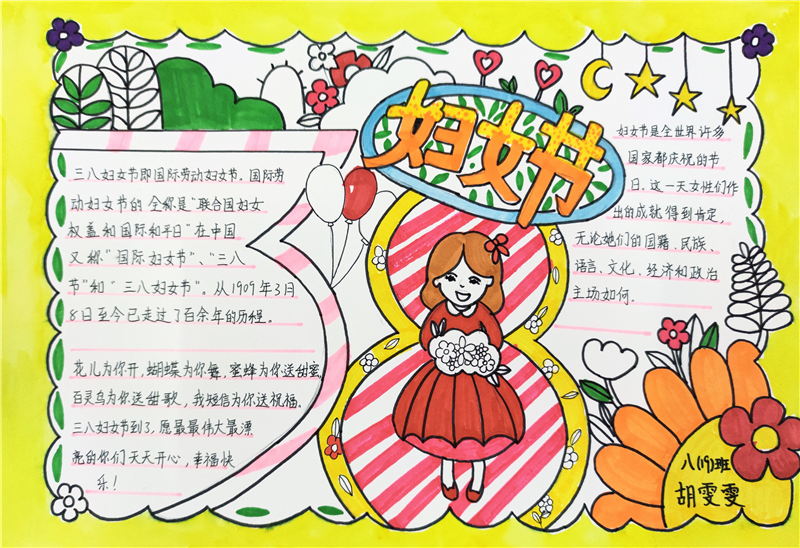 妇女节
三八妇女节即国际劳动妇女节。国际劳
动妇女节的全称是“联合国妇女
权益和国际和平日”在中国
又称“国际妇女节”、“三八
节”和“三八妇女节”。从1909年3月
8日至今已走过了百余年的历程。
花儿为你开，蝴蝶为你舞，蜜蜂为你送甜蜜，
百灵鸟为你送甜歌，我短信为你送祝福。
三八妇女节到了，愿最最伟大最漂
亮的你们天天开心，幸福快
乐！
妇女节是全世界许多
国家都庆祝的节
日。这一天女性们作
出的成就得到肯定，
无论她们的国籍、民族、
语言、文化、经济和政治
主场如何.
八(19)班
胡雯雯